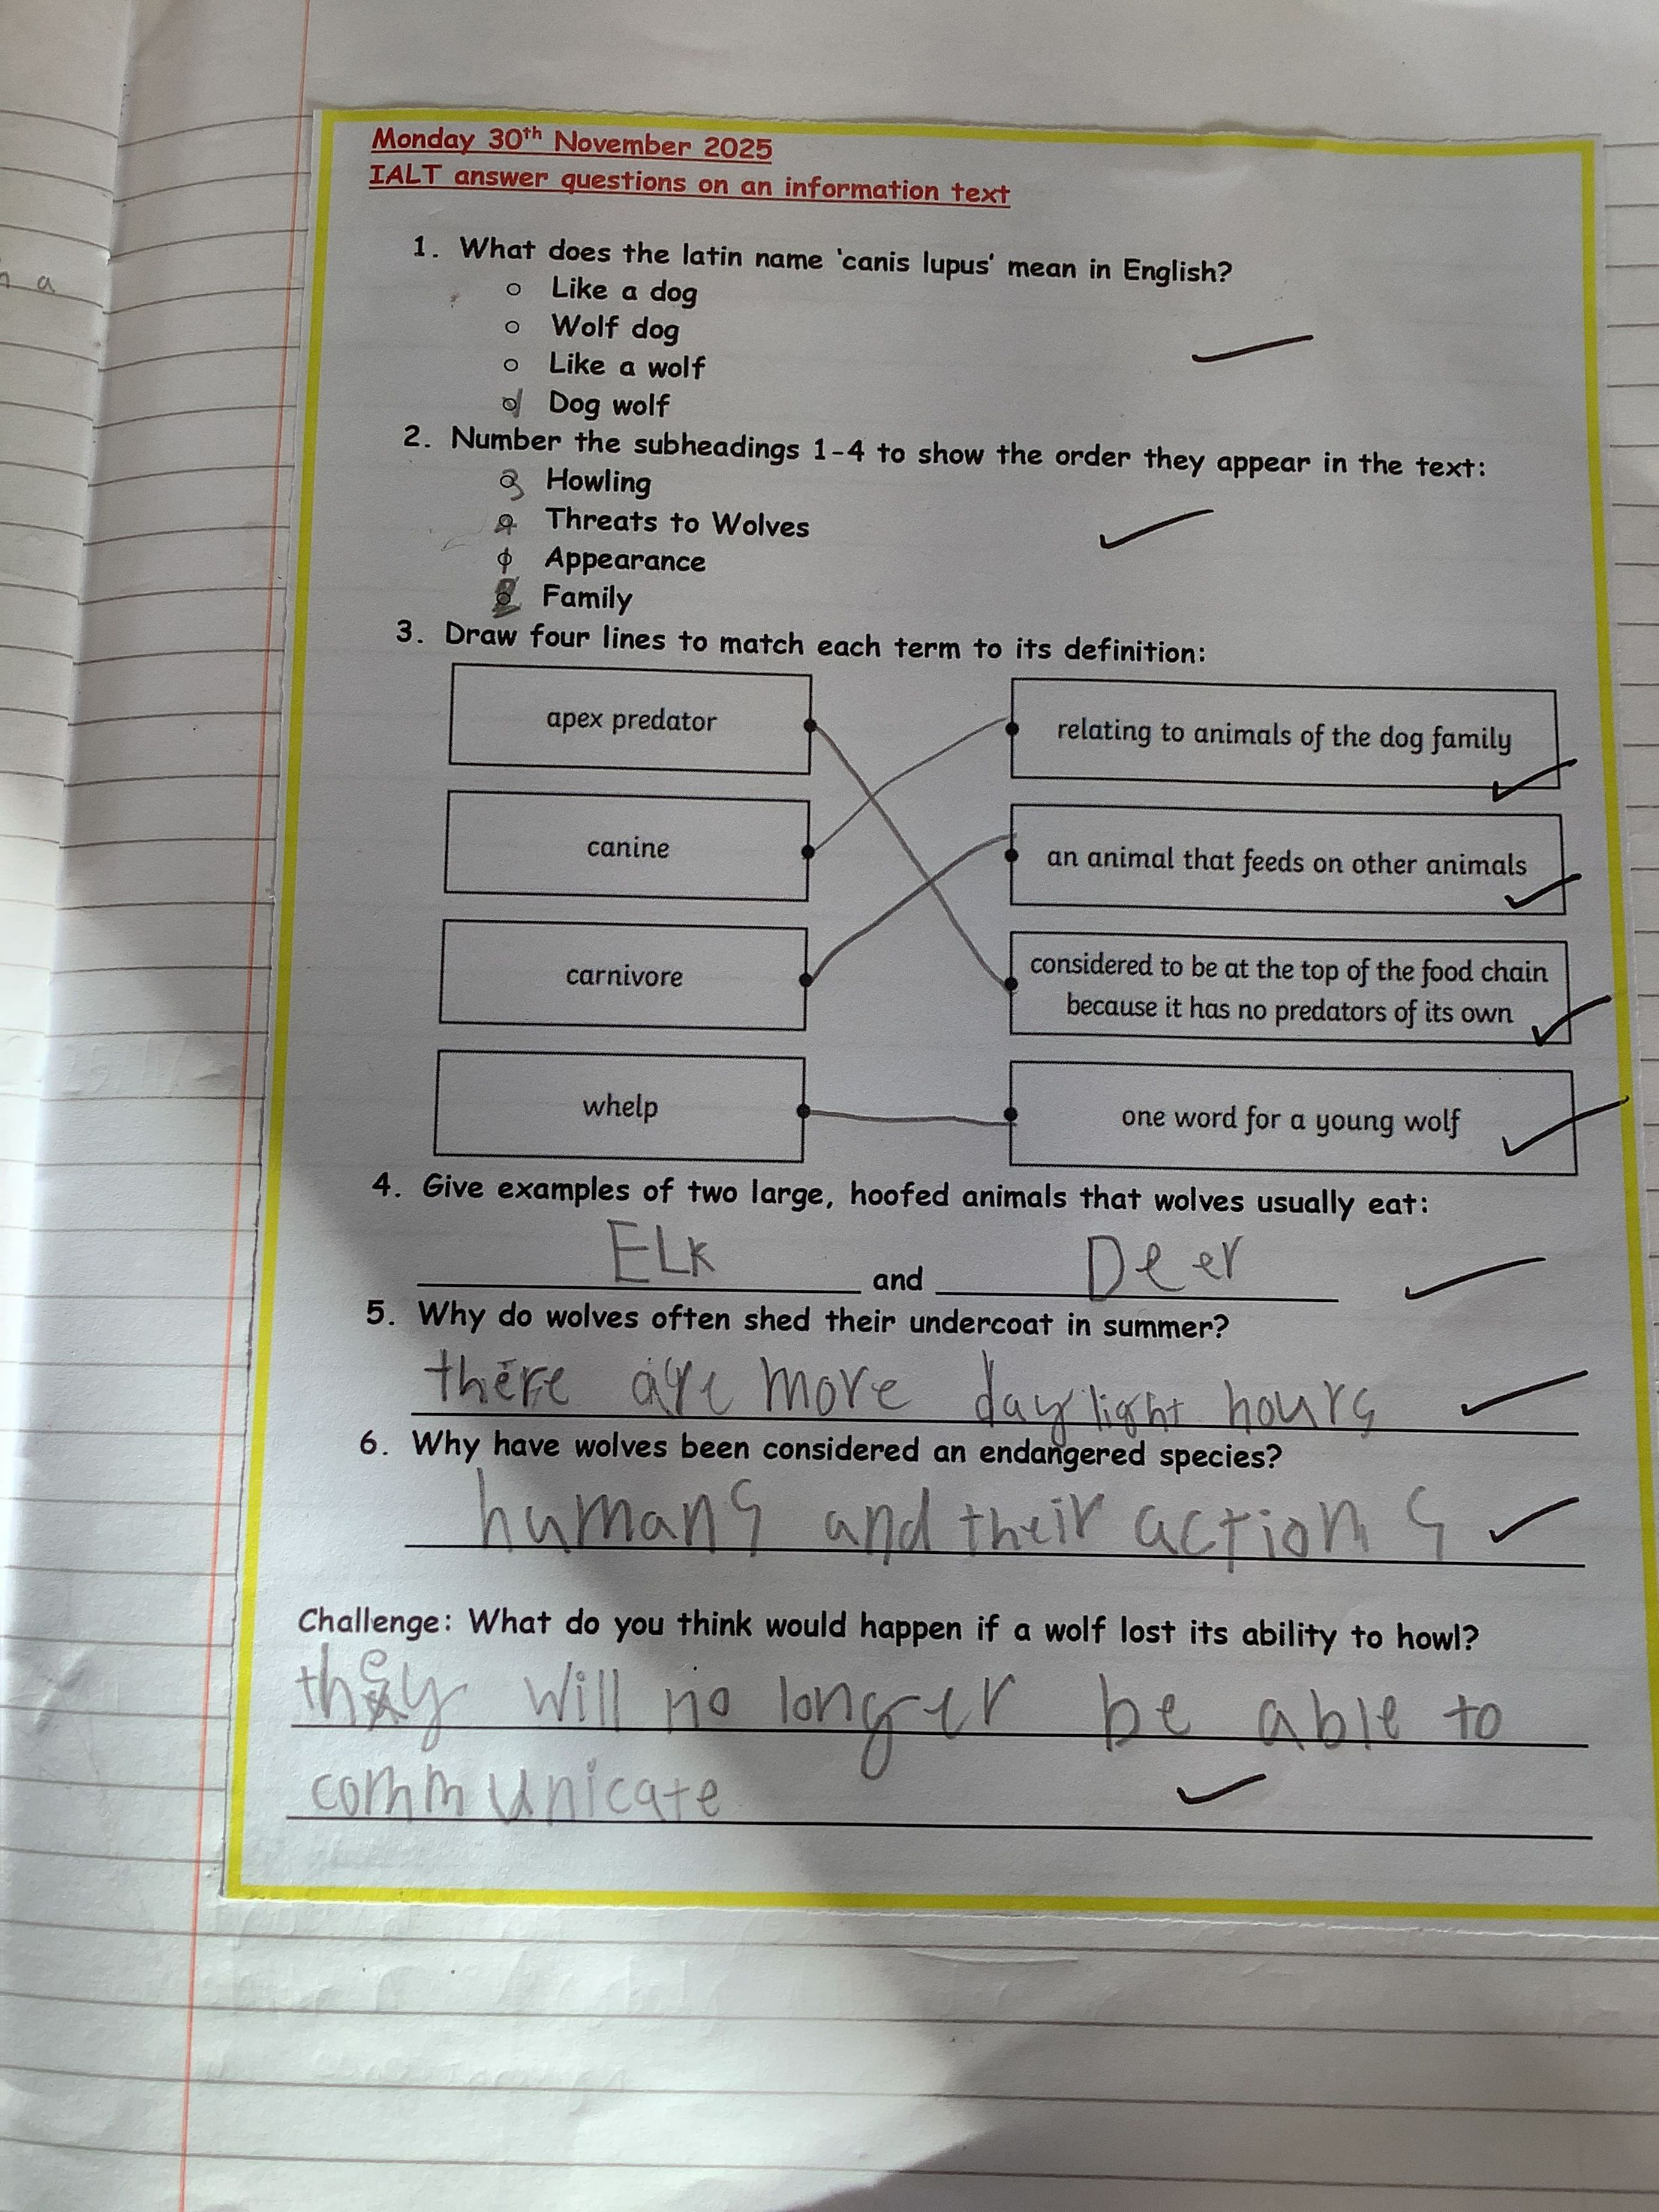 Monday 30th November 2025
IALT answer questions on an information text
1. What does the latin name 'canis lupus' mean in English?
Like a dog
Wolf dog
Like a wolf
Dog wolf
2. Number the subheadings 1-4 to show the order they appear in the text:
3 Howling
4 Threats to Wolves
1 Appearance
2 Family
3. Draw four lines to match each term to its definition:
apex predator
relating to animals of the dog family
canine
an animal that feeds on other animals
carnivore
considered to be at the top of the food chain
because it has no predators of its own
whelp
one word for a young wolf
4. Give examples of two large, hoofed animals that wolves usually eat:
ELk and Deer
5. Why do wolves often shed their undercoat in summer?
there are more daylight hours
6. Why have wolves been considered an endangered species?
humans and their actions
Challenge: What do you think would happen if a wolf lost its ability to howl?
they will no longer be able to
communicate